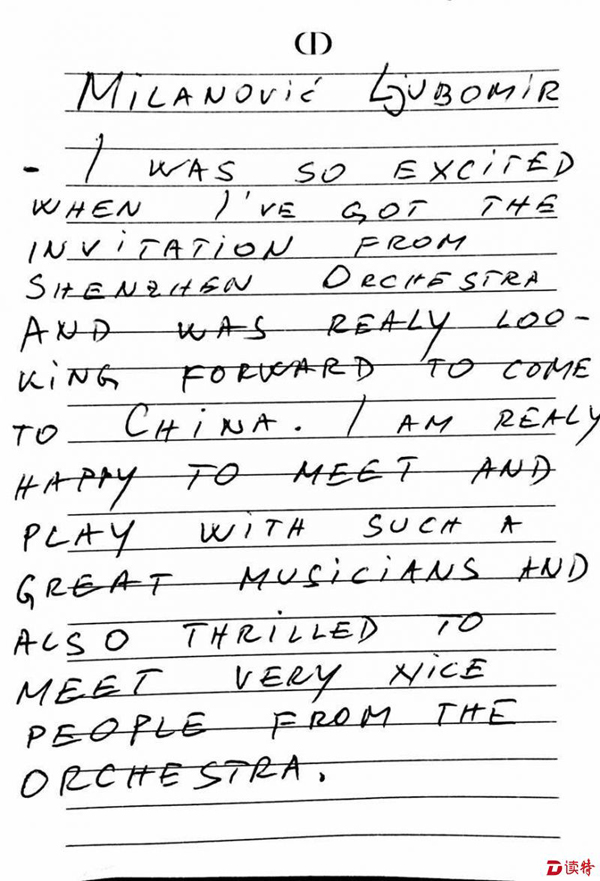 (I)
MILANOVIĆ LJUBOMIR
- I WAS SO EXCITED
WHEN I'VE GOT THE
INVITATION FROM
SHENZHEN ORCHESTRA
AND WAS REALY LOO-
KING FORWARD TO COME
TO CHINA. I AM REALY
HAPPY TO MEET AND
PLAY WITH SUCH A
GREAT MUSICIANS AND
ALSO THRILLED TO
MEET VERY NICE
PEOPLE FROM THE
ORCHESTRA.
读特